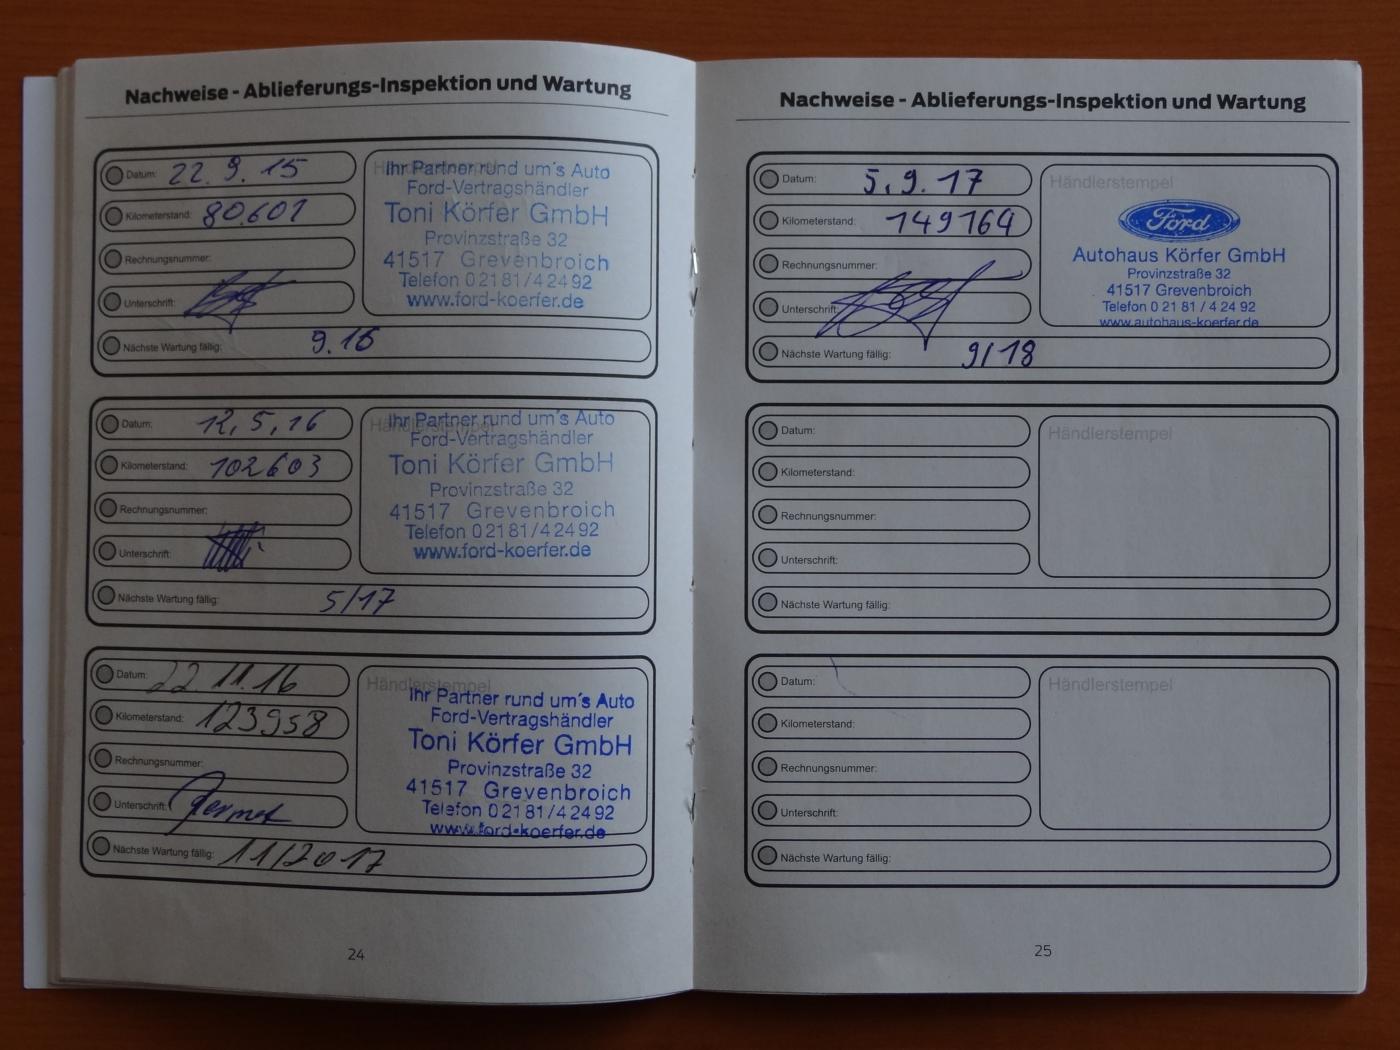 Nachweise - Ablieferungs-Inspektion und Wartung
Datum: 22.9.15
Kilometerstand: 80.601
Rechnungsnummer:
Unterschrift:
Nächste Wartung fällig: 9.16
Händlerstempel
Ihr Partner rund um's Auto
Ford-Vertragshändler
Toni Körfer GmbH
Provinzstraße 32
41517 Grevenbroich
Telefon 02181/42492
www.ford-koerfer.de
Datum: 12,5,16
Kilometerstand: 102603
Rechnungsnummer:
Unterschrift:
Nächste Wartung fällig: 5/17
Händlerstempel
Ihr Partner rund um's Auto
Ford-Vertragshändler
Toni Körfer GmbH
Provinzstraße 32
41517 Grevenbroich
Telefon 02181/42492
www.ford-koerfer.de
Datum: 22.11.16
Kilometerstand: 123958
Rechnungsnummer:
Unterschrift:
Nächste Wartung fällig: 11/2017
Händlerstempel
Ihr Partner rund um's Auto
Ford-Vertragshändler
Toni Körfer GmbH
Provinzstraße 32
41517 Grevenbroich
Telefon 02181/42492
www.ford-koerfer.de
24
Nachweise - Ablieferungs-Inspektion und Wartung
Datum: 5.9.17
Kilometerstand: 149164
Rechnungsnummer:
Unterschrift:
Nächste Wartung fällig: 9/18
Händlerstempel
Ford
Autohaus Körfer GmbH
Provinzstraße 32
41517 Grevenbroich
Telefon 0 21 81 / 4 24 92
www.autohaus-koerfer.de
Datum:
Kilometerstand:
Rechnungsnummer:
Unterschrift:
Nächste Wartung fällig:
Händlerstempel
Datum:
Kilometerstand:
Rechnungsnummer:
Unterschrift:
Nächste Wartung fällig:
Händlerstempel
25